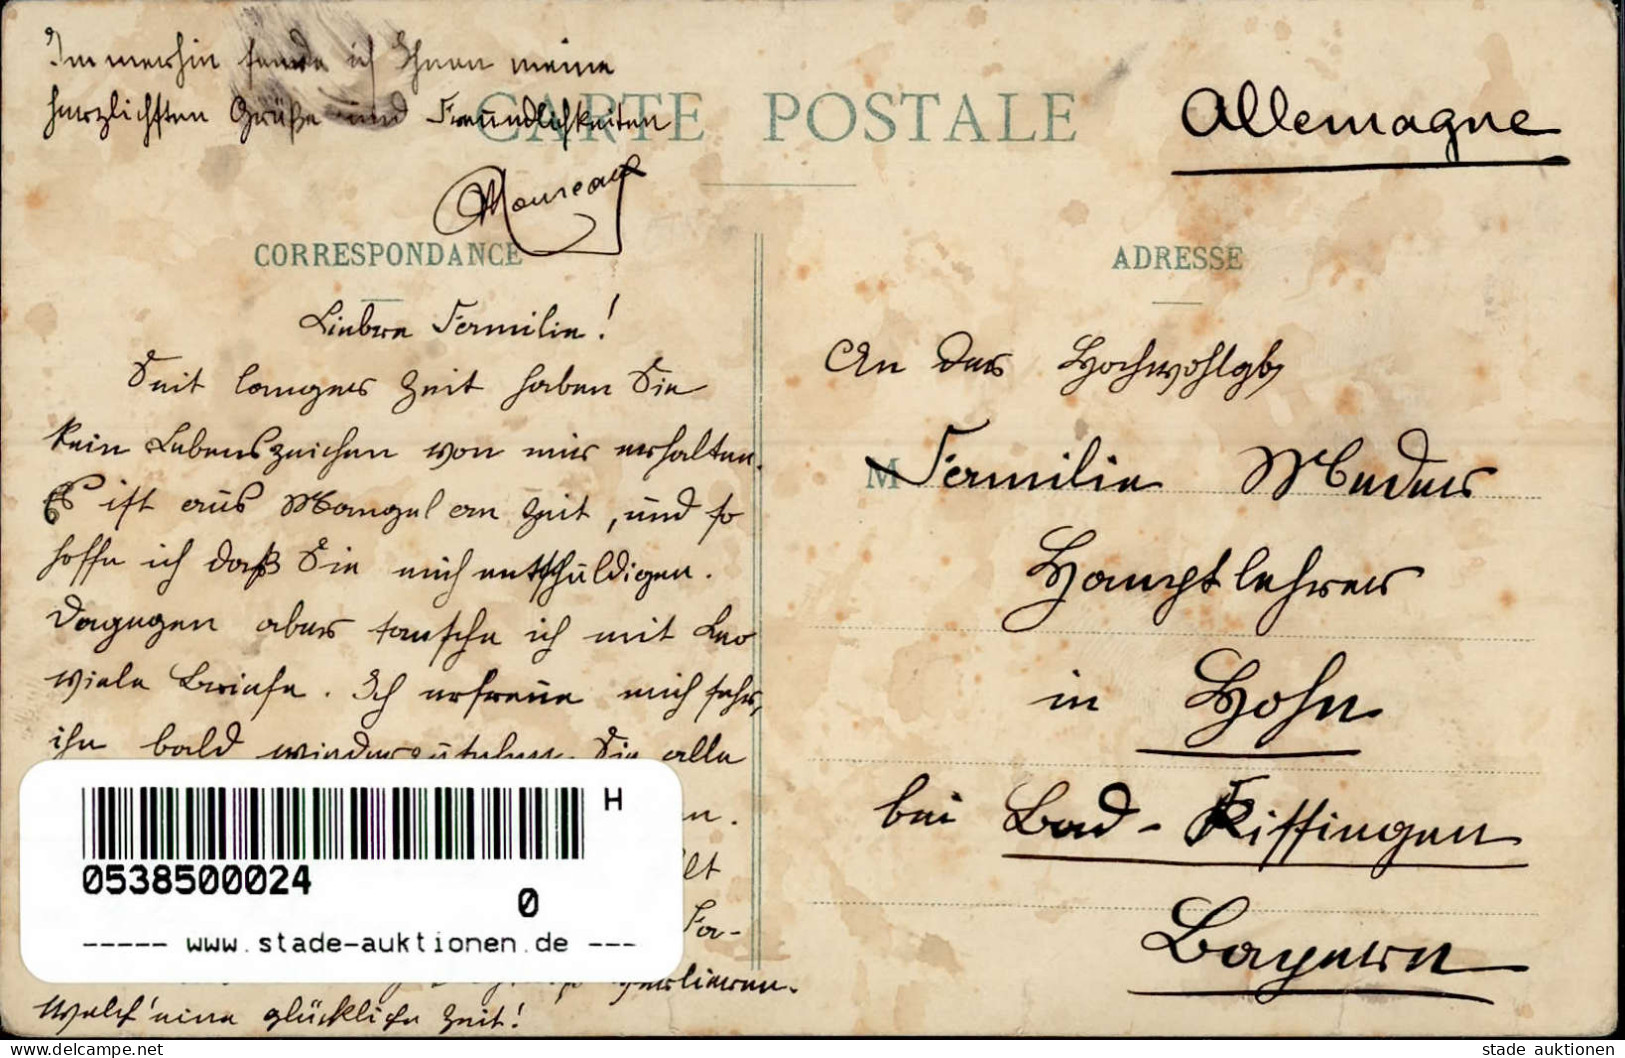 Immerhin sende ich Ihnen meine
herzlichsten Grüße und Freundlichkeiten
Moureaux
CARTE POSTALE
Allemagne
CORRESPONDANCE
Liebe Familie!
Seit langer Zeit haben Sie
kein Lebenszeichen von mir erhalten.
Es ist aus Mangel an Zeit, und so
hoffe ich daß Sie mich entschuldigen.
Dagegen aber tausche ich mit Leo
viele Briefe. Ich erfreue mich sehr,
ihn bald wiederzusehen. Sie alle
n.
lt
Fa-
verlieren.
Welch' eine glückliche Zeit!
ADRESSE
An der Hochwohlgb
M Familie Meder
Hauptlehrer
in Hohn
bei Bad-Kissingen
Bayern
H
0538500024
0
----- www.stade-auktionen.de ---
www.delcampe.net
stade auktionen